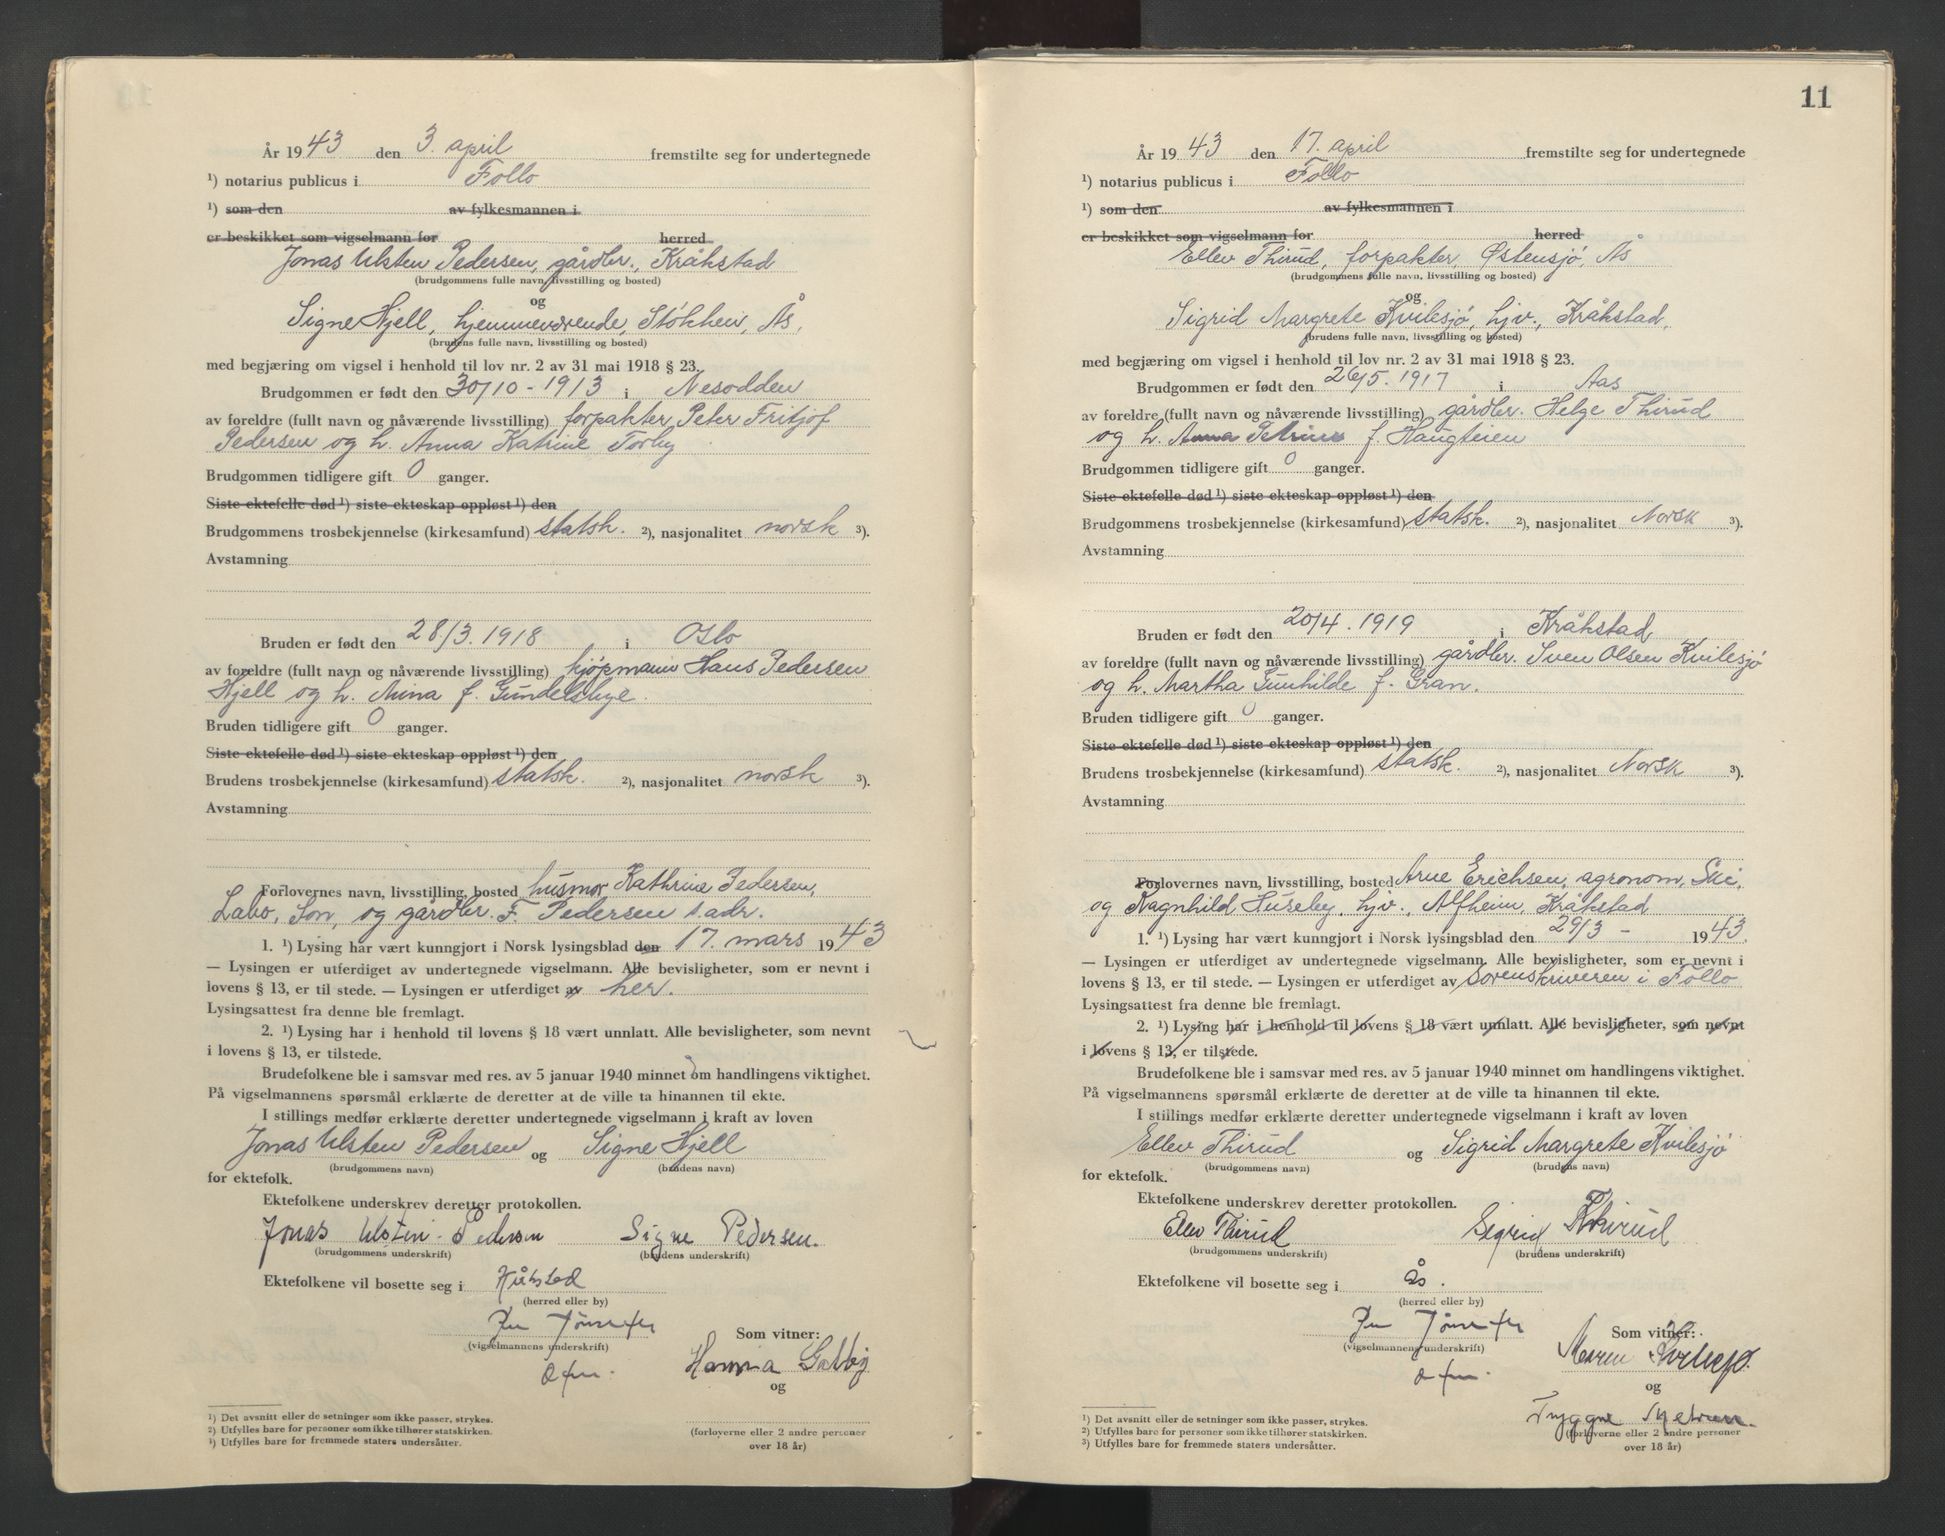 År 1943 den 3. april fremstilte seg for undertegnede
¹) notarius publicus i Follo
¹) som den av fylkesmannen i
er beskikket som vigselmann for herred
Jonas Ulsten Pedersen, gårdbr., Kråkstad
(brudgommens fulle navn, livsstilling og bosted)
og
Signe Hjell, hjemmeværende, Støkken, Ås,
(brudens fulle navn, livsstilling og bosted)
med begjæring om vigsel i henhold til lov nr. 2 av 31 mai 1918 § 23.
Brudgommen er født den 30/10-1913 i Nesodden
av foreldre (fullt navn og nåværende livsstilling) forpakter Peter Fritjof
Pedersen og h. Anna Katrine Torby
Brudgommen tidligere gift 0 ganger.
Siste ektefelle død ¹) siste ekteskap oppløst ¹) den
Brudgommens trosbekjennelse (kirkesamfund) statsk. ²), nasjonalitet norsk ³).
Avstamning
Bruden er født den 28/3.1918 i Oslo
av foreldre (fullt navn og nåværende livsstilling) kjøpmann Hans Pedersen
Hjell og h. Anna f. Gundelsbye.
Bruden tidligere gift 0 ganger.
Siste ektefelle død ¹) siste ekteskap oppløst ¹) den
Brudens trosbekjennelse (kirkesamfund) statsk. ²), nasjonalitet norsk ³).
Avstamning
Forlovernes navn, livsstilling, bosted husmor Kathrine Pedersen,
Labo, Son, og gårdbr. F. Pedersen s. adr.
1. ¹) Lysing har vært kunngjort i Norsk lysingsblad den 17. mars 1943
— Lysingen er utferdiget av undertegnede vigselmann. Alle bevisligheter, som er nevnt i
lovens § 13, er til stede. — Lysingen er utferdiget av her.
Lysingsattest fra denne ble fremlagt.
2. ¹) Lysing har i henhold til lovens § 18 vært unnlatt. Alle bevisligheter, som nevnt
i lovens § 13, er tilstede.
Brudefolkene ble i samsvar med res. av 5 januar 1940 minnet om handlingens viktighet.
På vigselmannens spørsmål erklærte de deretter at de ville ta hinannen til ekte.
I stillings medfør erklærte deretter undertegnede vigselmann i kraft av loven
Jonas Ulsten Pedersen og Signe Hjell
(brudgommens navn) (brudens navn)
for ektefolk.
Ektefolkene underskrev deretter protokollen.
Jonas Ulsten Pedersen Signe Pedersen.
(brudgommens underskrift) (brudens underskrift)
Ektefolkene vil bosette seg i Kråkstad
(herred eller by)
Som vitner:
(vigselmannens underskrift)
Hanna
og
¹) Det avsnitt eller de setninger som ikke passer, strykes.
²) Utfylles bare for personer som ikke tilhører statskirken.
³) Utfylles bare for fremmede staters undersåtter.
(forloverne eller 2 andre personer
over 18 år)
11
År 1943 den 17. april fremstilte seg for undertegnede
¹) notarius publicus i Follo
¹) som den av fylkesmannen i
er beskikket som vigselmann for herred
Ellev Thirud, forpakter, Østensjø, Ås
(brudgommens fulle navn, livsstilling og bosted)
og
Sigrid Margrete Kvilesjø, hjv., Kråkstad,
(brudens fulle navn, livsstilling og bosted)
med begjæring om vigsel i henhold til lov nr. 2 av 31 mai 1918 § 23.
Brudgommen er født den 26/5.1917 i Aas
av foreldre (fullt navn og nåværende livsstilling) gårdbr. Helge Thirud
og h. Anna Petrine f. Haugteien
Brudgommen tidligere gift 0 ganger.
Siste ektefelle død ¹) siste ekteskap oppløst ¹) den
Brudgommens trosbekjennelse (kirkesamfund) statsk. ²), nasjonalitet Norsk ³).
Avstamning
Bruden er født den 20/4.1919 i Kråkstad
av foreldre (fullt navn og nåværende livsstilling) gårdbr. Sven Olsen Kvilesjø
og h. Martha Gunhilde f. Gran.
Bruden tidligere gift 0 ganger.
Siste ektefelle død ¹) siste ekteskap oppløst ¹) den
Brudens trosbekjennelse (kirkesamfund) statsk. ²), nasjonalitet Norsk ³).
Avstamning
Forlovernes navn, livsstilling, bosted Arne Erichsen, agronom, Ski,
og Ragnhild Huseby, hjv., Alfheim, Kråkstad
1. ¹) Lysing har vært kunngjort i Norsk lysingsblad den 29/3 - 1943.
— Lysingen er utferdiget av undertegnede vigselmann. Alle bevisligheter, som er nevnt i
lovens § 13, er til stede. — Lysingen er utferdiget av sorenskriveren i Follo
Lysingsattest fra denne ble fremlagt.
2. ¹) Lysing har i henhold til lovens § 18 vært unnlatt. Alle bevisligheter, som nevnt
i lovens § 13, er tilstede.
Brudefolkene ble i samsvar med res. av 5 januar 1940 minnet om handlingens viktighet.
På vigselmannens spørsmål erklærte de deretter at de ville ta hinannen til ekte.
I stillings medfør erklærte deretter undertegnede vigselmann i kraft av loven
Ellev Thirud og Sigrid Margrete Kvilesjø
(brudgommens navn) (brudens navn)
for ektefolk.
Ektefolkene underskrev deretter protokollen.
Ellev Thirud Sigrid Thirud
(brudgommens underskrift) (brudens underskrift)
Ektefolkene vil bosette seg i Ås.
(herred eller by)
Som vitner:
(vigselmannens underskrift)
og
¹) Det avsnitt eller de setninger som ikke passer, strykes.
²) Utfylles bare for personer som ikke tilhører statskirken.
³) Utfylles bare for fremmede staters undersåtter.
(forloverne eller 2 andre personer
over 18 år)